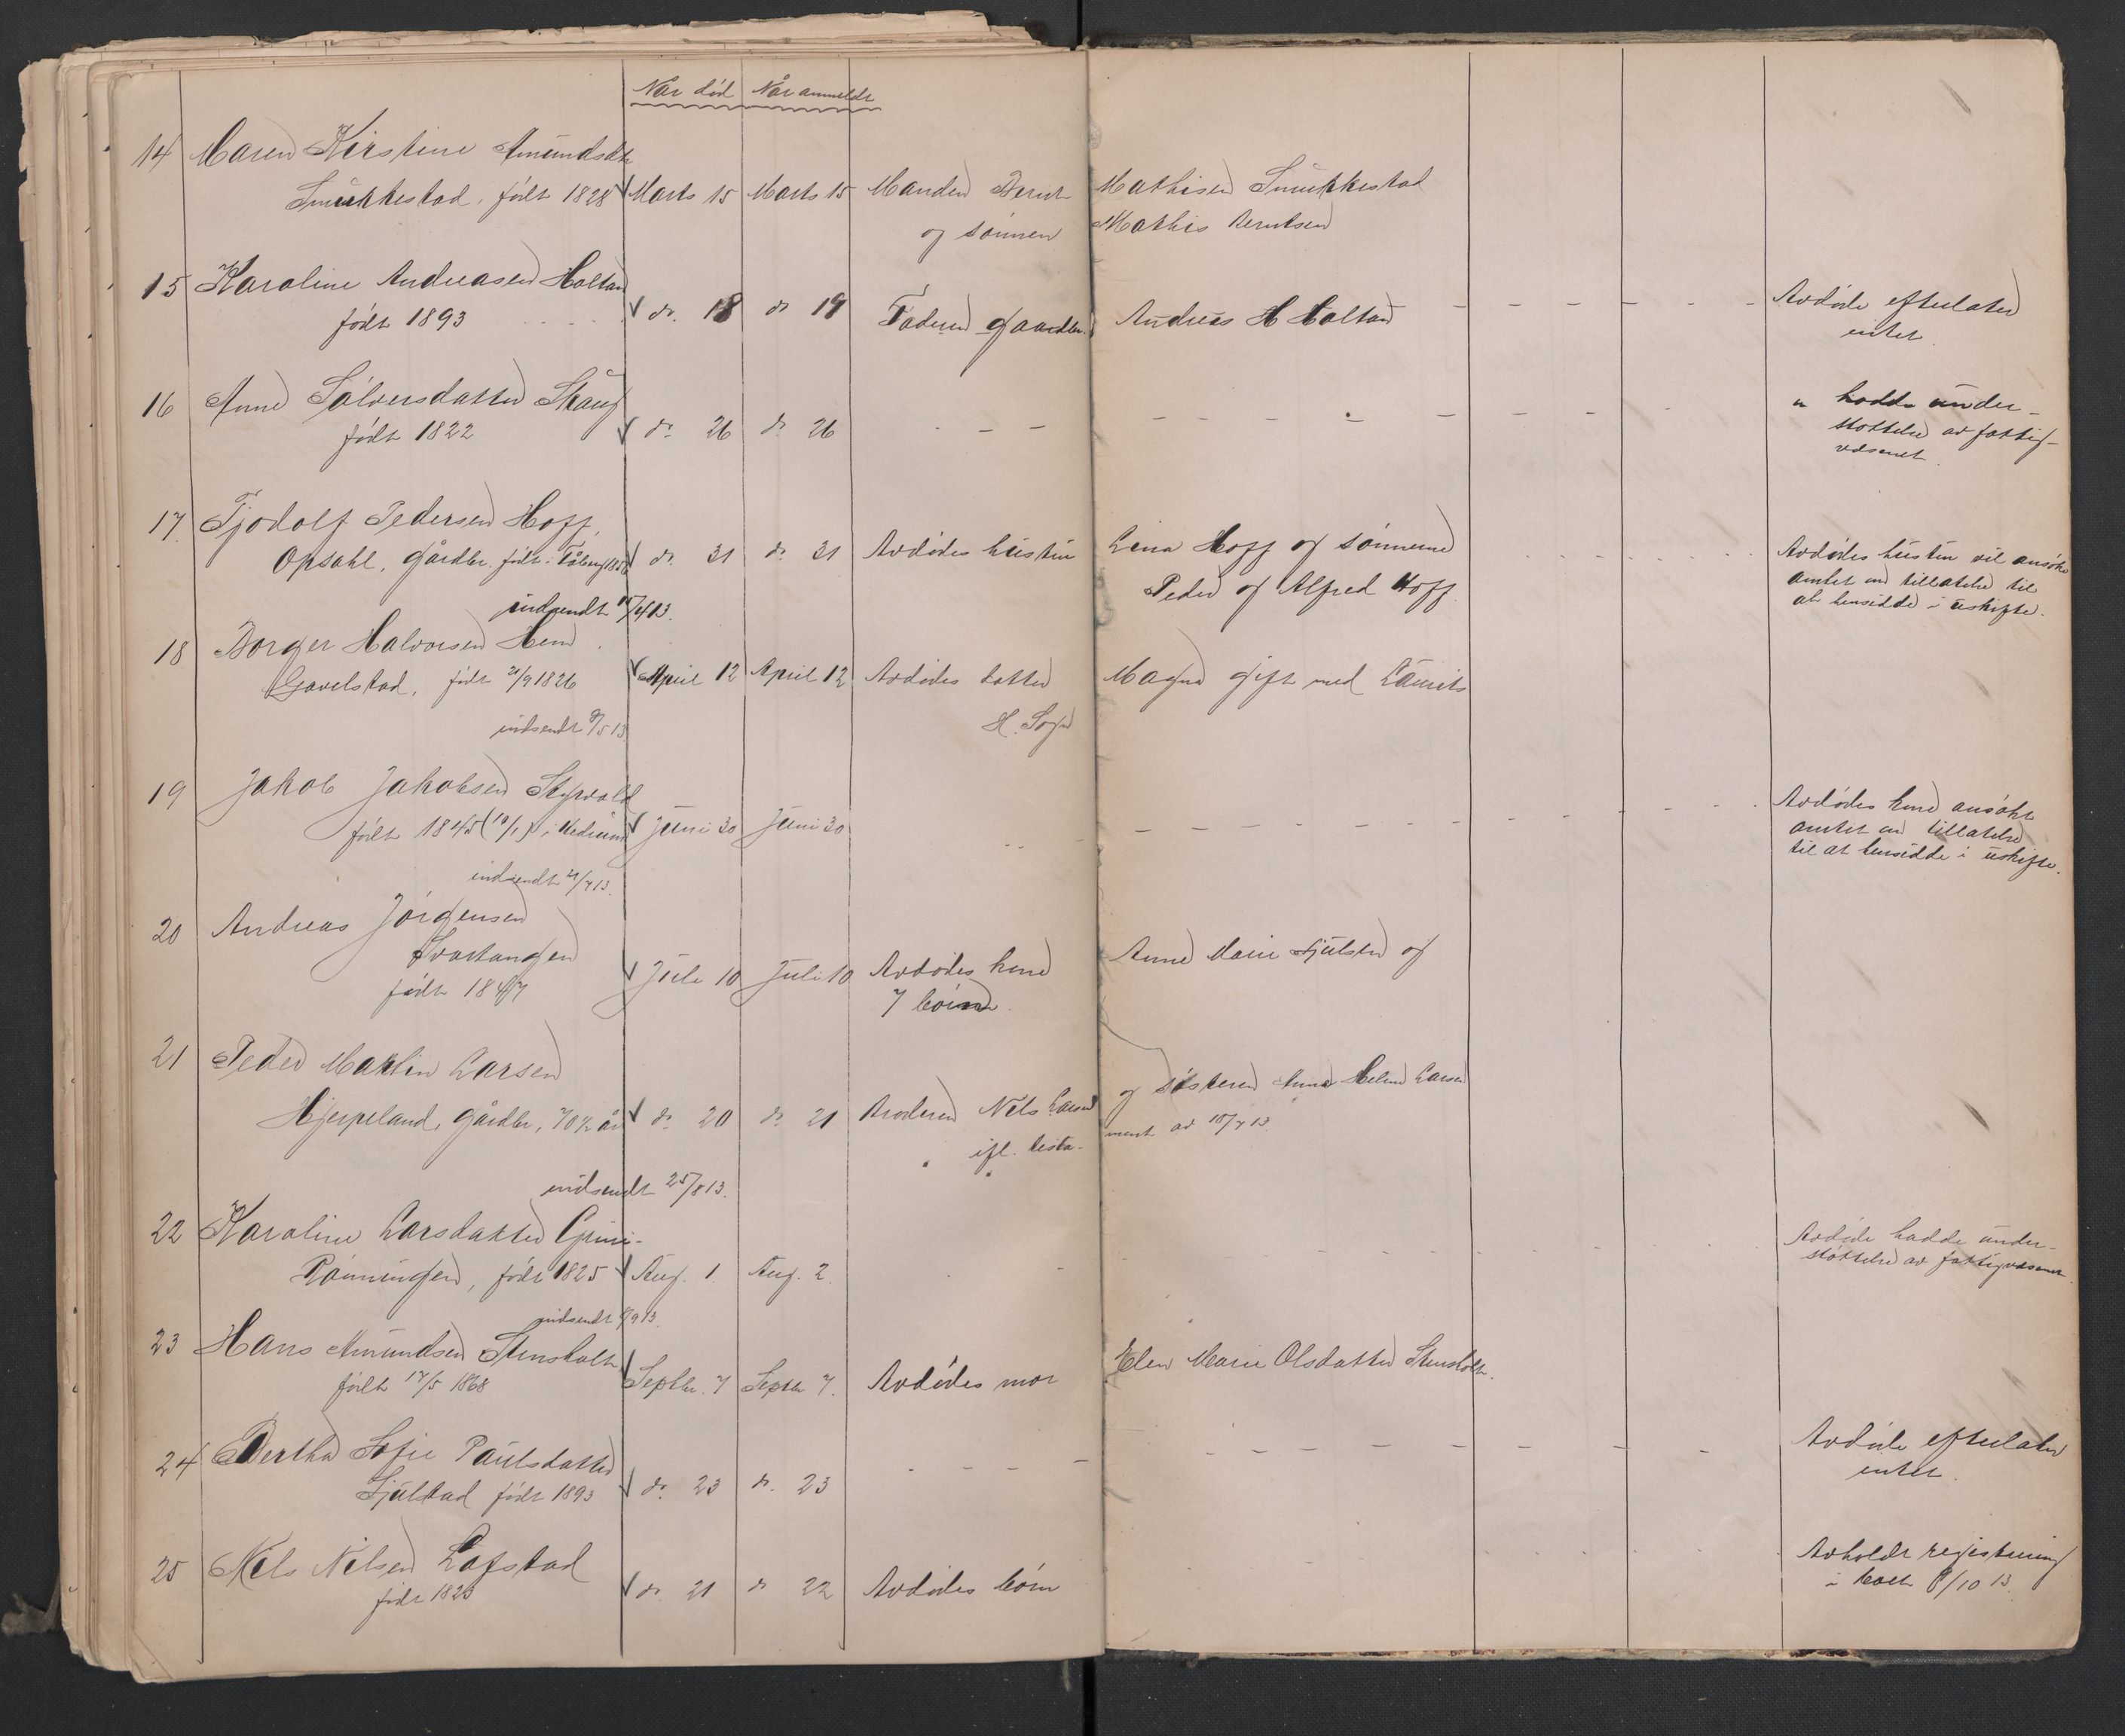 Når död Når anmeldt
14 Maren Kirstine Amundsdtr
Smukkestad, født 1828 Marts 15 Marts 15 Manden Bernt Mathisen Smukkestad
og sønnen Mathis Berntsen
15 Karoline Andreasen Holtan
født 1893 do. 18 do 19 Faderen gaardbr. Andreas H Holtan - - - - - - Avdøde efterlater
intet.
16 Anne Sølversdatter Skaug
født 1822 do 26 do 26 - - - - - - - - - - - " hadde under-
støttelse av fattig-
væsenet.
17 Tjodolf Pedersen Hoff,
Opsahl, gårdbr. født i Fåberg do 31 do 31 Avdødes hustru Lina Hoff og sønnerne
Peder og Alfred Hoff.
Avdødes hustru vil ansøke
amtet om tillatelse til
at hensidde i uskifte.
indsendt 4 13.
18 Borger Halvorsen Hem
Gavelstad, født 21/9 1826 April 12 April 12 Avdødes datter Magna gift med Laurits
H. Sogn
indsendt 9/5 13.
19 Jakob Jakobsen Styrvold
født 1845 (10/1) i Hedrum Juni 30 Juni 30 - - - - - - - - Avdødes kone ansøkt
amtet om tillatelse
til at hensidde i uskifte.
indsendt 21/7 13.
20 Andreas Jörgensen
Svartangen
født 1847 Juli 10 Juli 10 Avdødes kone Anne Marie Hjulsted og
7 börn.
21 Peder Martin Larsen
Hjerpeland, gårdbr, 70 ½ år do 20 do 21 Broderen Nils Larsen og søsteren Anne Helene Larsen
ifl. testa- ment av 18/7 13.
indsendt 25/8 13.
22 Karoline Larsdatter Gpuri-
Rönningen, født 1825 Aug. 1. Aug. 2. - - - - - - - Avdøde hadde under-
støttelse av fattigvæsenet
indsendt 9 13.
23 Hans Amundsen Stensholt
født 17/5 1868 Septbr. 7 Septbr 7. Avdødes mor Elen Marie Olsdatter Stensholt.
24 Bertha Sofie Paulsdatter
Sjulstad født 1893 do. 23 do. 23 - - - - - - - - - - - Avdøde efterlater
intet.
25 Nils Nilsen Lofstad
født 1823 do. 21 do 22 Avdødes börn
Avholdt registrering
i boet 8/10 13.